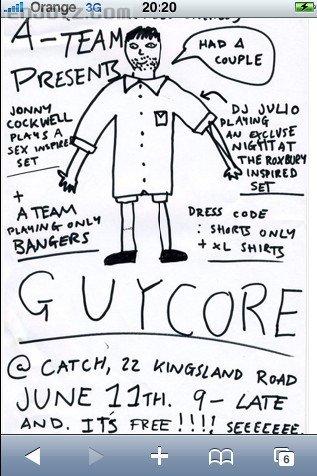 Orange 3G 20:20
A-TEAM
PRESENTS
HAD A
COUPLE
JONNY
COCKWELL
PLAYS A
SEX INSPIRED
SET
DJ JULIO
PLAYING
AN EXCLUSE
NIGHT AT
THE ROXBURY
INSPIRED
SET
+
A TEAM
PLAYING ONLY
BANGERS
DRESS CODE
: SHORTS ONLY
+ XL SHIRTS
GUYCORE
@ CATCH, 22 KINGSLAND ROAD
JUNE 11TH. 9-LATE
AND. IT'S FREE!!!! SEEEEEEE.
6